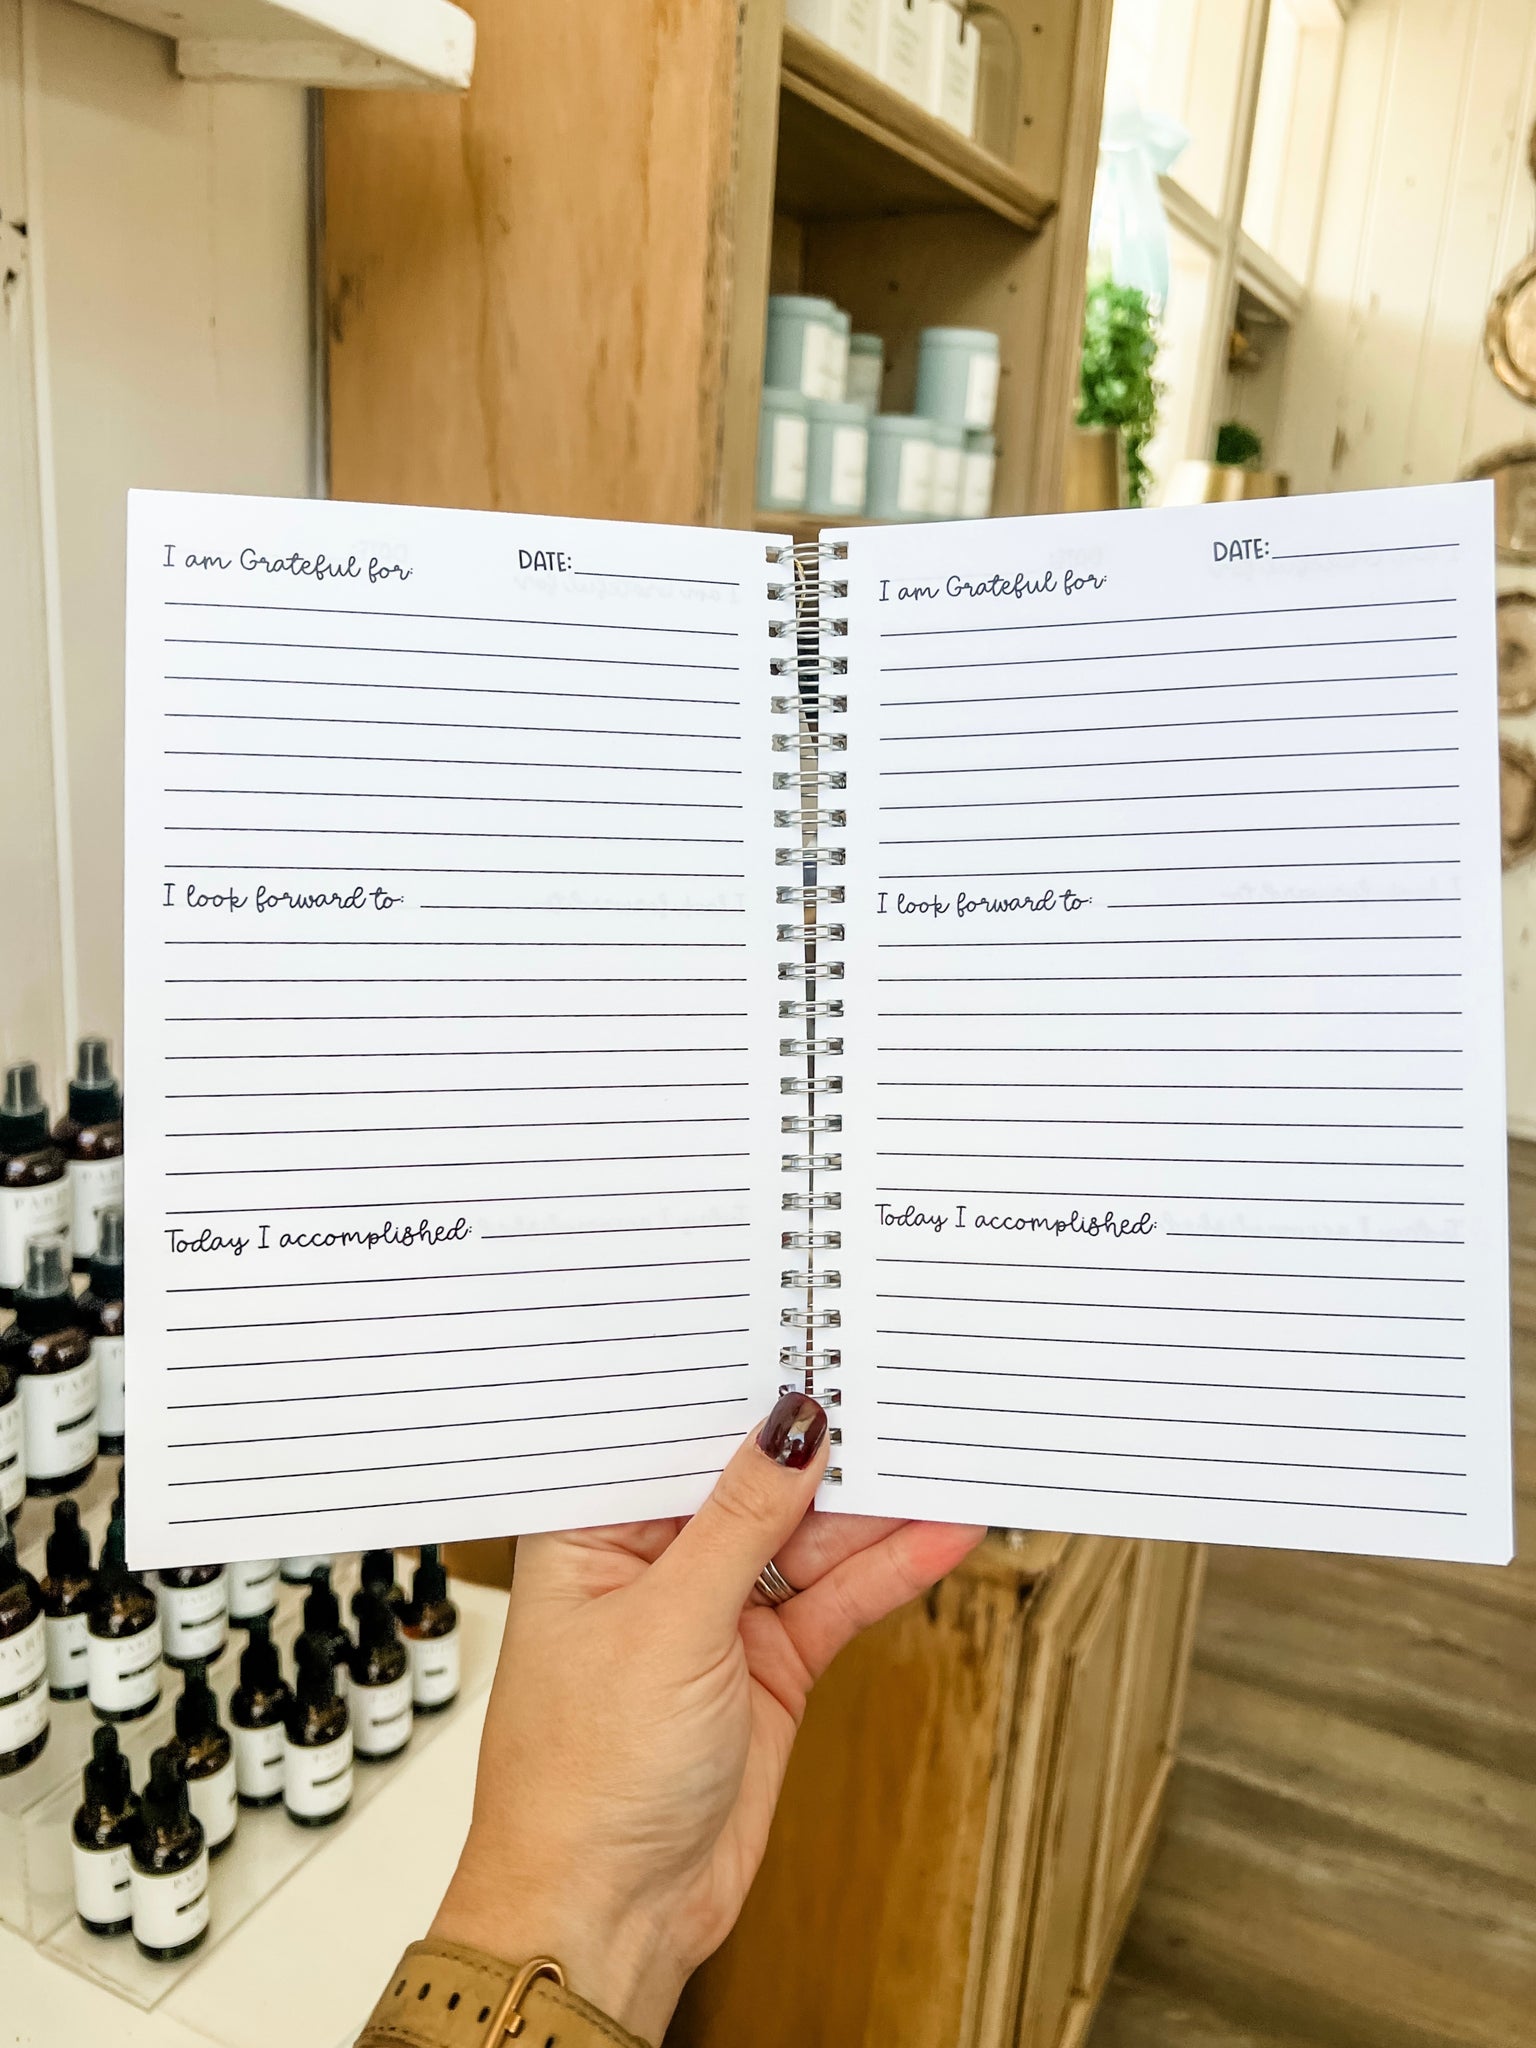 I am Grateful for:
DATE:
I look forward to:
Today I accomplished:
I am Grateful for:
DATE:
I look forward to:
Today I accomplished: